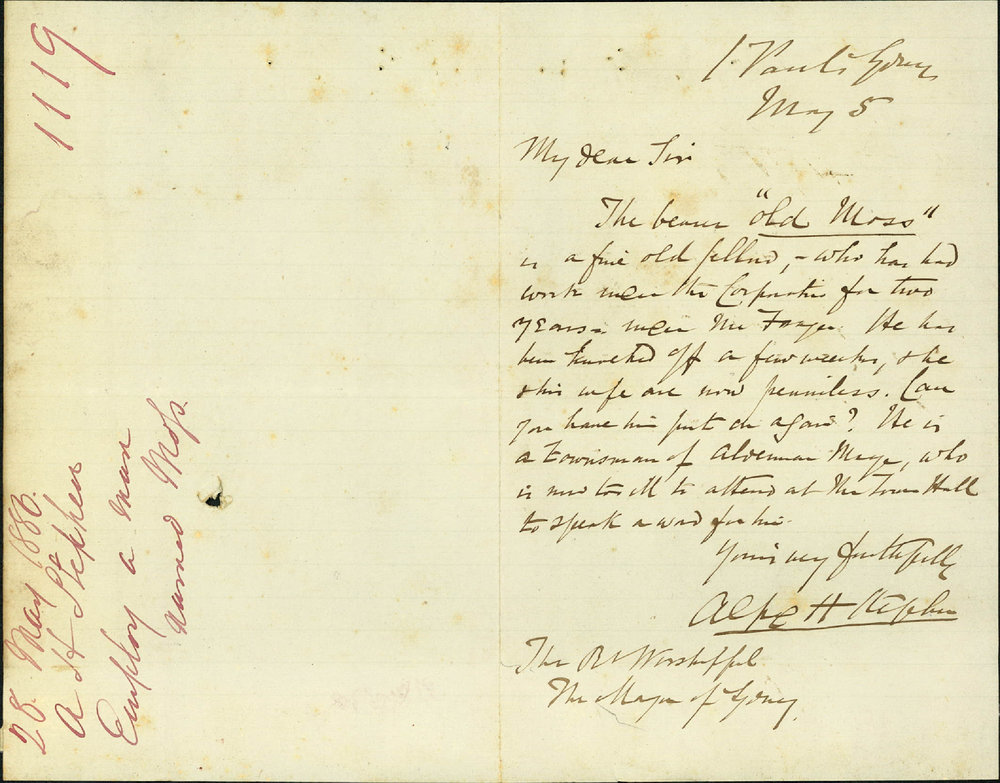 1119
28. May 1886.
A H Stephen
Employ a man
named Moss
St Pauls Sydney
May 5
My dear Sir
The bearer "old Moss"
is a fine old fellow, - who has had
work under the Corporation for two
years - under Mr He has
been knocked off a few weeks, & he
& his wife are now penniless. Can
you have him put on again? He is
a townsman of Alderman Meyer, who
is now too ill to attend at the Town Hall
to speak a word for him.
Yours very faithfully
Alfd H Stephen
The Rt Worshipful
The Mayor of Sydney